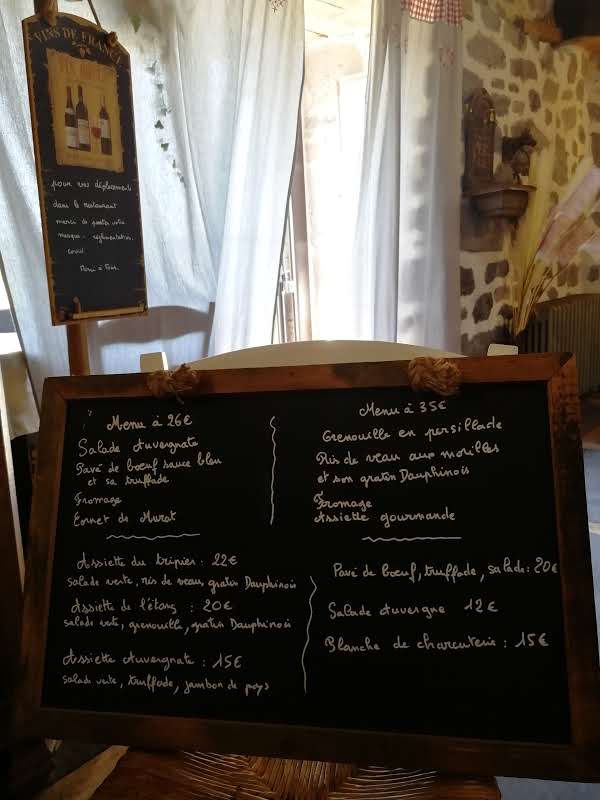 VINS DE FRANCE
pour vos déplacements
dans le restaurant
merci de porter votre
masque - réglementation
covid
Merci à tous
Menu à 26€
Salade Auvergnate
Pavé de bœuf sauce bleu
et sa truffade
Fromage
Cornet de Murat
Menu à 35€
Grenouille en persillade
Ris de veau aux morilles
et son gratin Dauphinois
Fromage
Assiette gourmande
Assiette du tripier : 22€
salade verte, ris de veau, gratin Dauphinois
Assiette de l'étang : 20€
salade verte, grenouille, gratin Dauphinois
Assiette Auvergnate : 15€
salade verte, truffade, jambon de pays
Pavé de bœuf, truffade, salade : 20€
Salade Auvergne 12€
Planche de charcuterie : 15€